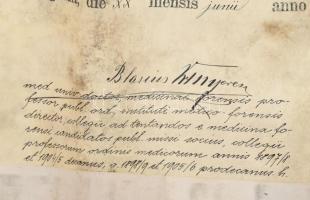 die XX mensis junii anno
Blasius
med. univ. doctor, medicinae forensis pro-
fessor publ. ord., instituti medico-forensis
director, collegii ad tentandos e medicina fo-
rensi candidatos publ. missi socius, collegii
professorum ordinis medicorum annis 1897/8
et 1904/5 decanus, a. 1898/9 et 1905/6 prodecanus h.